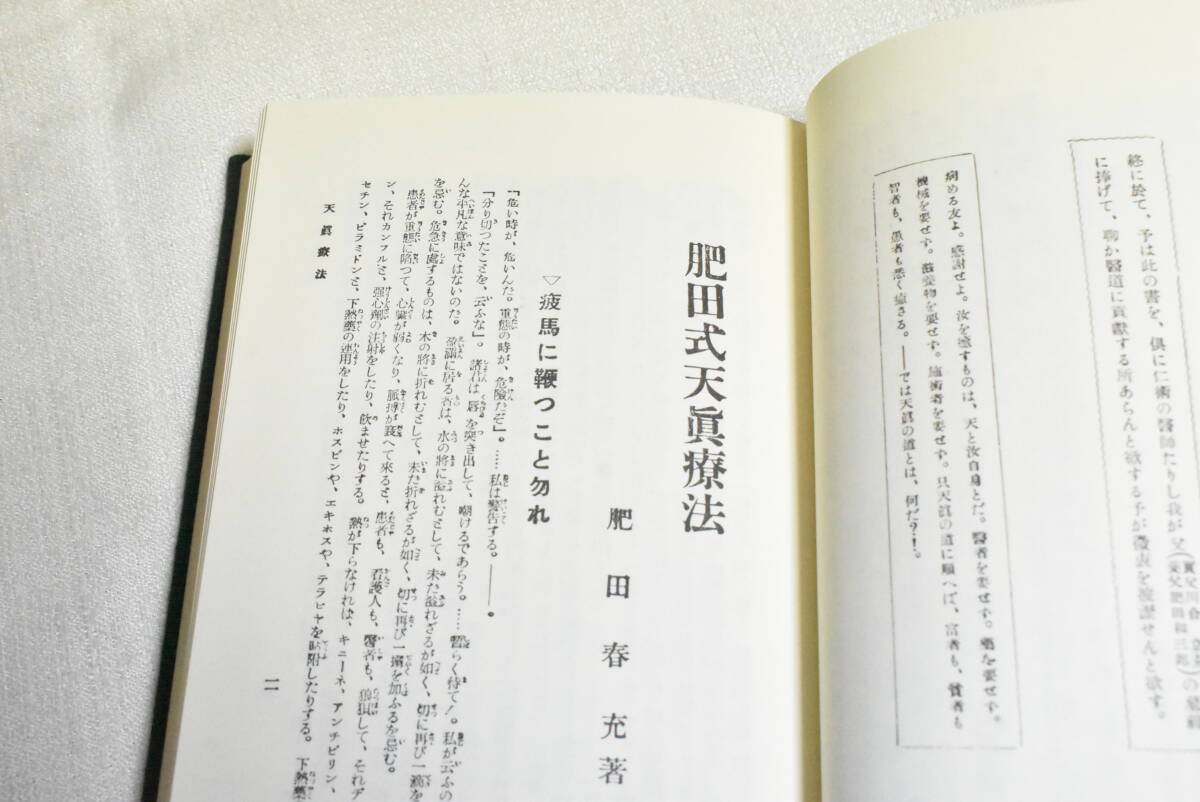 終に於て、予は此の書を、倶に仁術の醫師たりし我が父(實父川合 養父肥田和三郎)の墓前
に捧げて、聊か醫道に貢獻する所あらんと欲する予が微衷を披瀝せんと欲す。
病める友よ。感謝せよ。汝を癒すものは、天と汝自身とだ。醫者を要せず。藥を要せず。
機械を要せず。滋養物を要せず。施術者を要せず。只天眞の道に順へば、富者も、貧者も
智者も、愚者も悉く癒さる。――では天眞の道とは、何だ?!。
肥田式天眞療法
肥田春充著
▽疲馬に鞭つこと勿れ
「危い時が、危いんだ。重態の時が、危險だぞ」。……私は警告する。――。
「分り切つたことを、云ふな」。諸君は唇を突き出して、嘲けるであらう。……暫らく待て!。私が云ふの
んな平凡な意味ではないのだ。盈滿に居る者は、水の將に溢れむとして、未だ溢れざるが如く、切に再び一滴を
を忌む。危急に處するものは、木の將に折れむとして、未だ折れざるが如く、切に再び一搦を加ふるを忌む。
患者が重態に陷つて、心臟が弱くなり、脈搏が衰へて來ると、患者も、看護人も、醫者も、狼狽して、それデ
ン、それカンフルと、强心劑の注射をしたり、飮ませたりする。熱が下らなければ、キニーネ、アンチピリン、
セチン、ピラミドンと、下熱藥の運用をしたり、ホスピンや、エキホスや、テラピヤを貼附したりする。下熱藥
天眞療法
一一